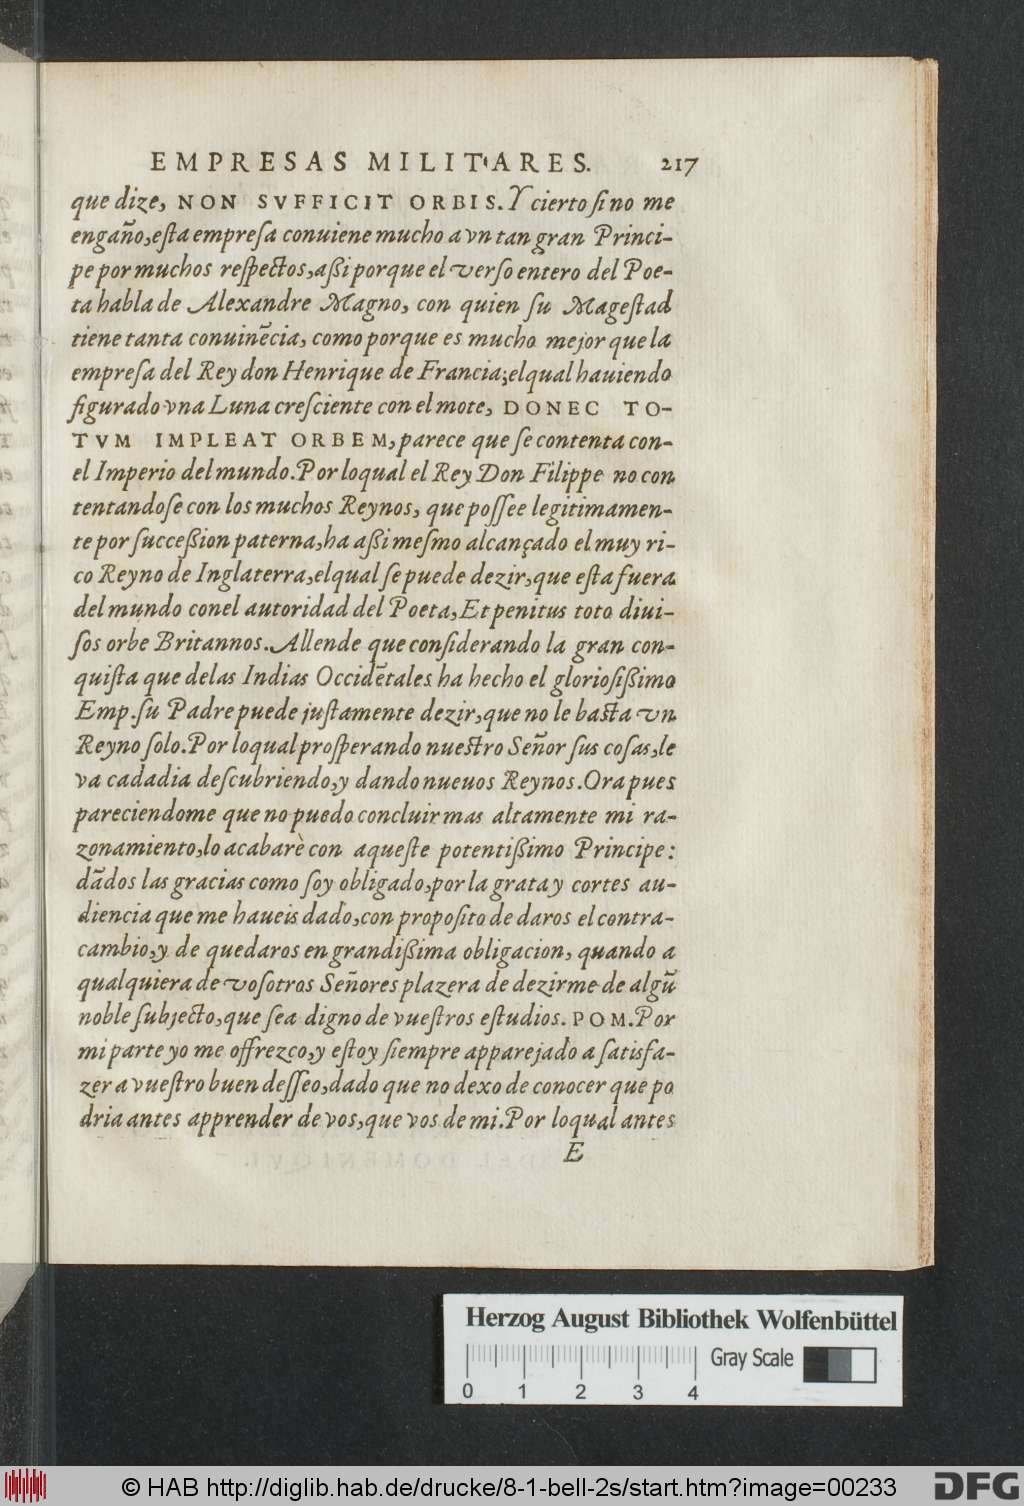 EMPRESAS MILITARES. 217
que dize, NON SVFFICIT ORBIS. Y cierto ſi no me
engaño, eſta empreſa conuiene mucho a vn tan gran Princi-
pe por muchos reſpectos, aßi porque el verſo entero del Poe-
ta habla de Alexandre Magno, con quien ſu Mageſtad
tiene tanta conuinẽcia, como porque es mucho mejor que la
empreſa del Rey don Henrique de Francia; elqual hauiendo
figurado vna Luna creſciente con el mote, DONEC TO-
TVM IMPLEAT ORBEM, parece que ſe contenta con-
el Imperio del mundo. Por loqual el Rey Don Filippe no con
tentandoſe con los muchos Reynos, que poſſee legitimamen-
te por ſucceßion paterna, ha aßi meſmo alcançado el muy ri-
co Reyno de Inglaterra, elqual ſe puede dezir, que eſta fuera
del mundo conel autoridad del Poeta, Et penitus toto diui-
ſos orbe Britannos. Allende que conſiderando la gran con-
quiſta que delas Indias Occidẽtales ha hecho el glorioſißimo
Emp. ſu Padre puede juſtamente dezir, que no le baſta vn
Reyno ſolo. Por loqual proſperando nueſtro Señor ſus coſas, le
va cadadia deſcubriendo, y dando nueuos Reynos. Ora pues
pareciendome que no puedo concluir mas altamente mi ra-
zonamiento, lo acabarè con aqueſte potentißimo Principe:
dãdos las gracias como ſoy obligado, por la grata y cortes au-
diencia que me haueis dado, con propoſito de daros el contra-
cambio, y de quedaros en grandißima obligacion, quando a
qualquiera de voſotros Señores plazera de dezirme de algũ
noble ſubjecto, que ſea digno de vueſtros eſtudios. POM. Por
mi parte yo me offrezco, y eſtoy ſiempre apparejado a ſatisfa-
zer a vueſtro buen deſſeo, dado que no dexo de conocer que po
dria antes apprender de vos, que vos de mi. Por loqual antes
E
Herzog August Bibliothek Wolfenbüttel
Gray Scale
0 1 2 3 4
© HAB http://diglib.hab.de/drucke/8-1-bell-2s/start.htm?image=00233
DFG